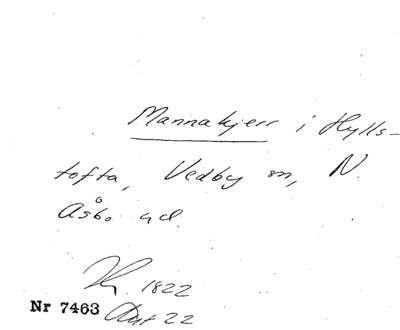 Mannakjerr i Hylls-
tofta, Vedby sn, N.
Åsbo hd.
1822
Nr 7463 Akt 22